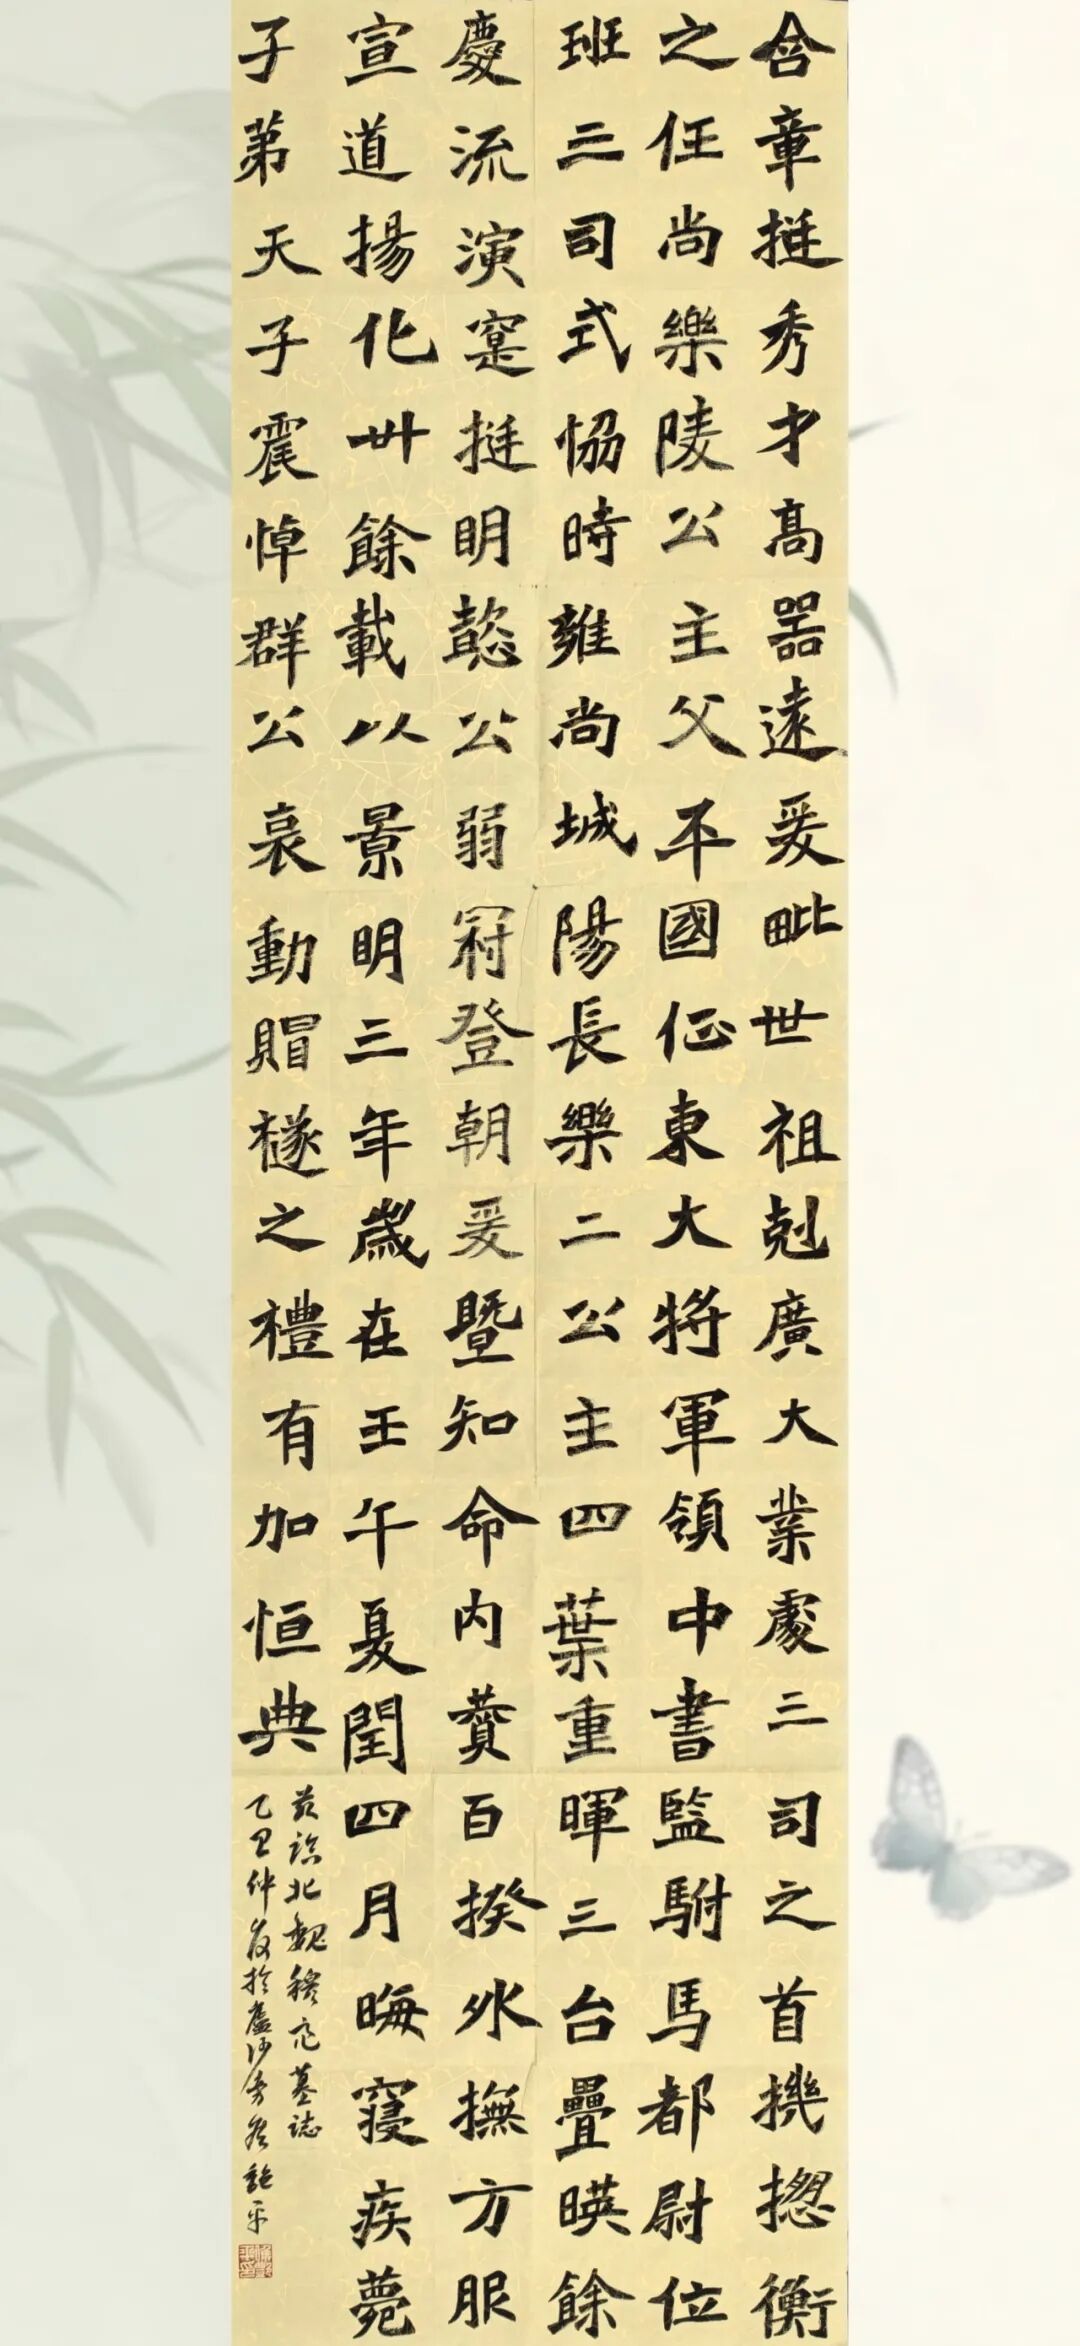 含章挺秀才高器遠爰毗世祖剋廣大業處三司之首機揔衡
之任尚樂陵公主父平國征東大將軍領中書監駙馬都尉位
班三司式協時雍尚城陽長樂二公主四葉重暉三台疊暎餘
慶流演寔挺明懿公弱冠登朝爰暨知命内賛百揆外撫方服
宣道揚化卅餘載以景明三年歲在壬午夏閏四月晦寢疾薨
子弟天子震悼群公哀動賵襚之禮有加恒典
节临北魏穆亮墓誌
乙丑仲 於 平